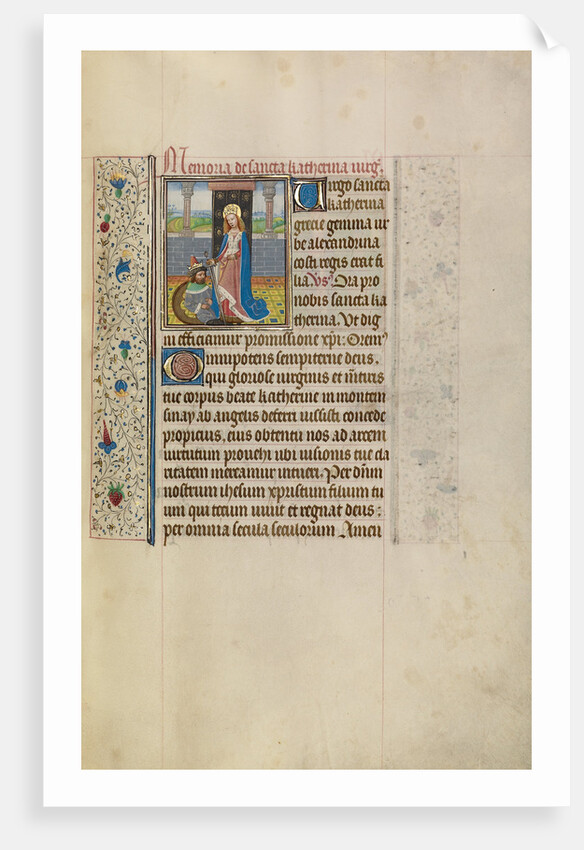 Memoria de sancta katherina uirg̃.
Uirgo sancta
katherina
grecie gemma ur
be alexandrina
costi regis erat fi
lia. Vs̃. Ora pro
nobis sancta ka
therina. Ut dig
ni efficiamur promissione xp̃i: Orem⁹
Omnipotens sempiterne deus.
qui gloriose uirginis et m̃tiris
tue corpus beate katherine in montem
sinay ab angelis deferri iussisti concede
propicius, eius obtentu nos ad arcem
uirtutum prouehi ubi uisionis tue cla
ritatem mereamur intueri. Per dñm
nostrum ihesum xpristum filium tu
um qui tecum uiuit et regnat deus:
per omnia secula seculorum Amen